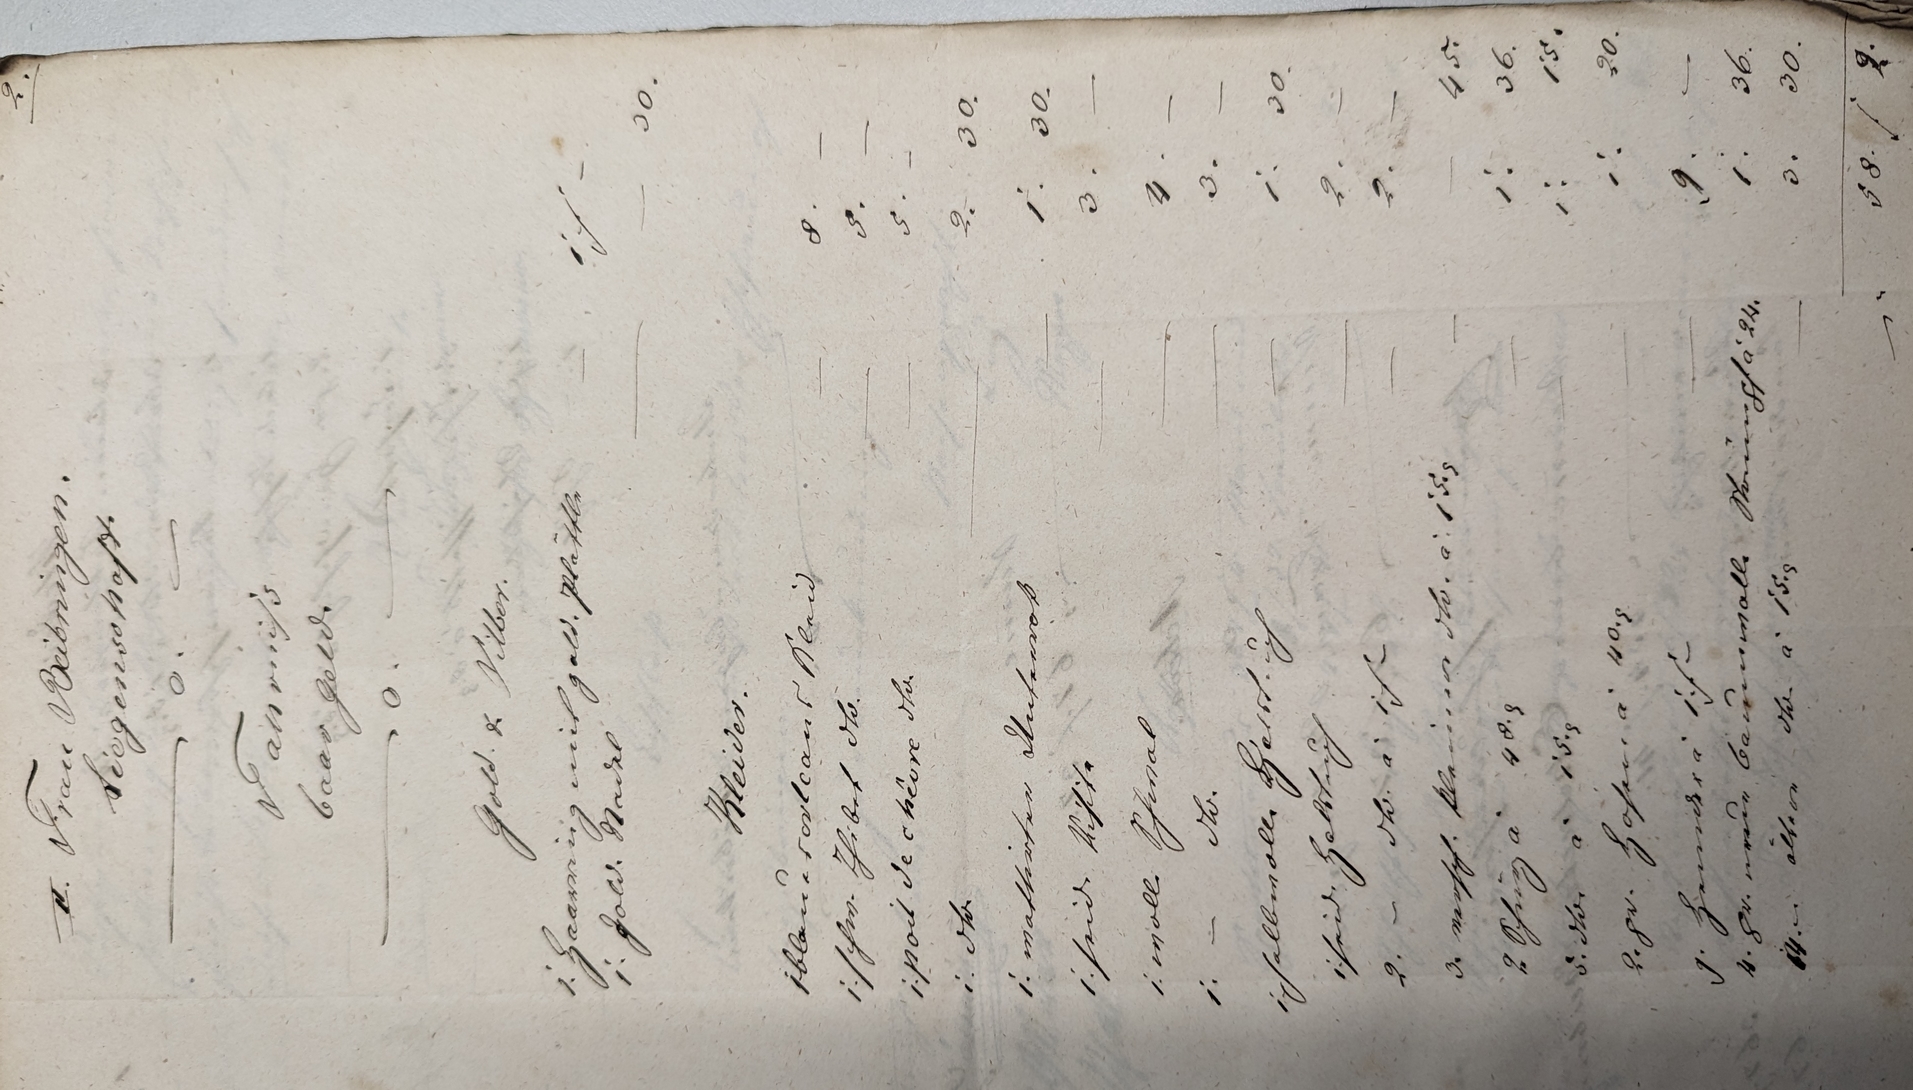 2.
II. Frau Beibringen.
Liegenschaft.
— 0. —
Fahrniß
baar Geld.
— 0. —
Gold & Silber.
1. Haarring mit gold. Plättle — 1 f —
1. Gold. Nadel — — 30.
Kleider.
1 blau Kleid — 8. —
1. schw. Thibet dto. — 5. —
1. poil de chèvre dto. — 5. —
1. dto. — 2. 30.
1. wattirter Unterrock — 1. 30.
1. seid. — 3. —
1. woll. Schawl — 4. —
1. — dto. — 3. —
1 halbwoll. Halstuch — 1. 30.
1 seid. Halstuch — 2. —
2. — dto. à 1 f — — 2. —
3. kleinere dto. à 15. — — 45.
2 Schurz à 48. — 1. 36.
5. dto. à 15. — 1. 15.
2. Hosen à 40. — 1. 20.
9. Hemder à 1 f — — 9. —
4. Pr. neue baumwoll. Strümpf à 24. 1. 36.
14. — ältere dto à 15. — 3. 30.
58. f 2.